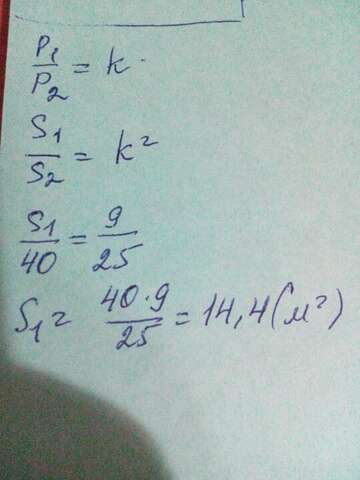 P₁/P₂ = k.
S₁/S₂ = k²
S₁/40 = 9/25
S₁ = 40·9/25 = 14,4 (м²)